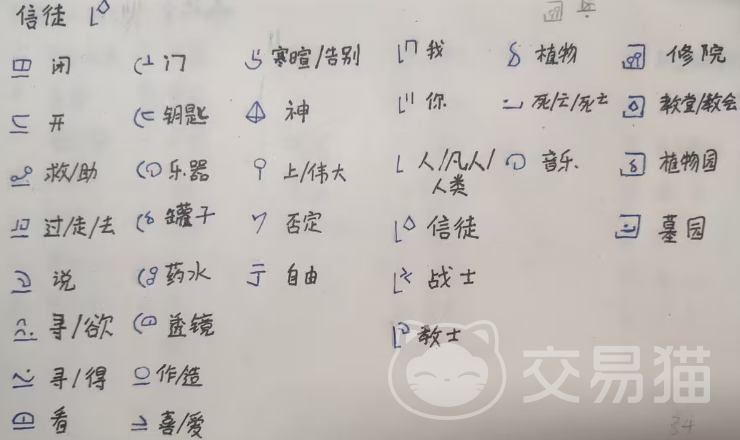 信徒
闭 门 寒暄/告别 我 植物 修院
开 钥匙 神 你 死/亡/死士 教堂/教会
救/助 乐器 上/伟大 人/凡人/人类 音乐 植物园
过/走/去 罐子 否定 信徒 墓园
说 药水 自由 战士
寻/欲 透镜 教士
寻/得 作/造
看 喜/爱
交易猫
34